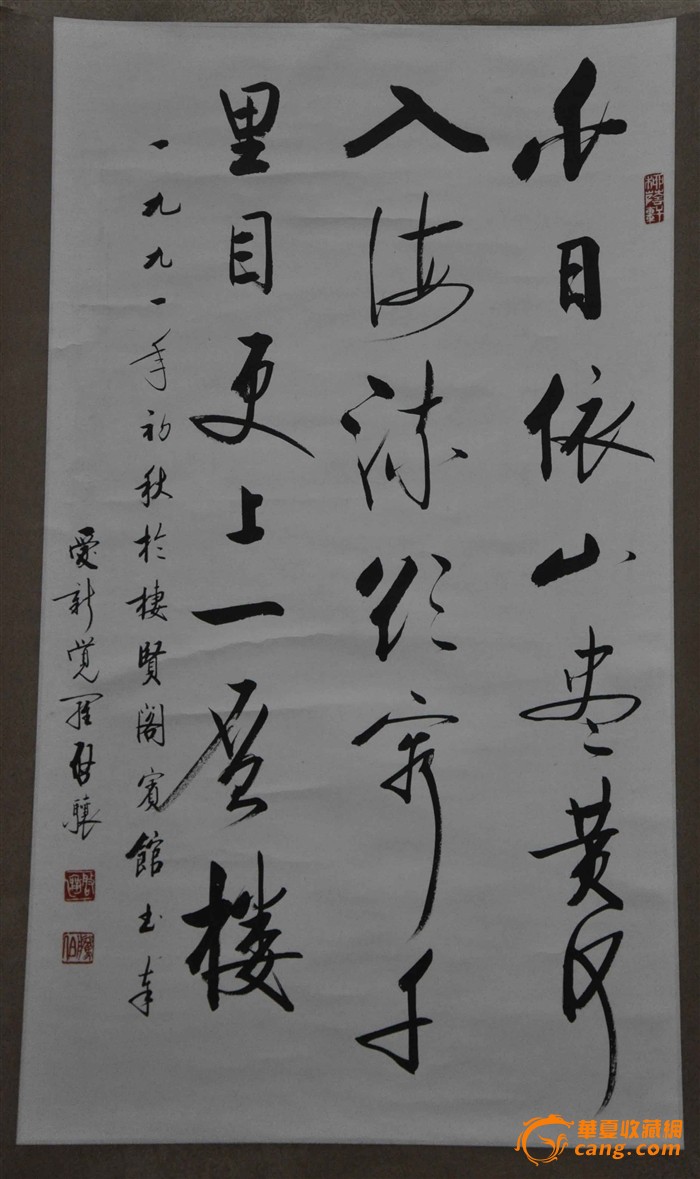 白日依山尽黄河
入海流欲穷千
里目更上一层楼
一九九一年初秋於棲賢阁賓館书奉
爱新觉羅啓驤
華夏收藏網
cang.com